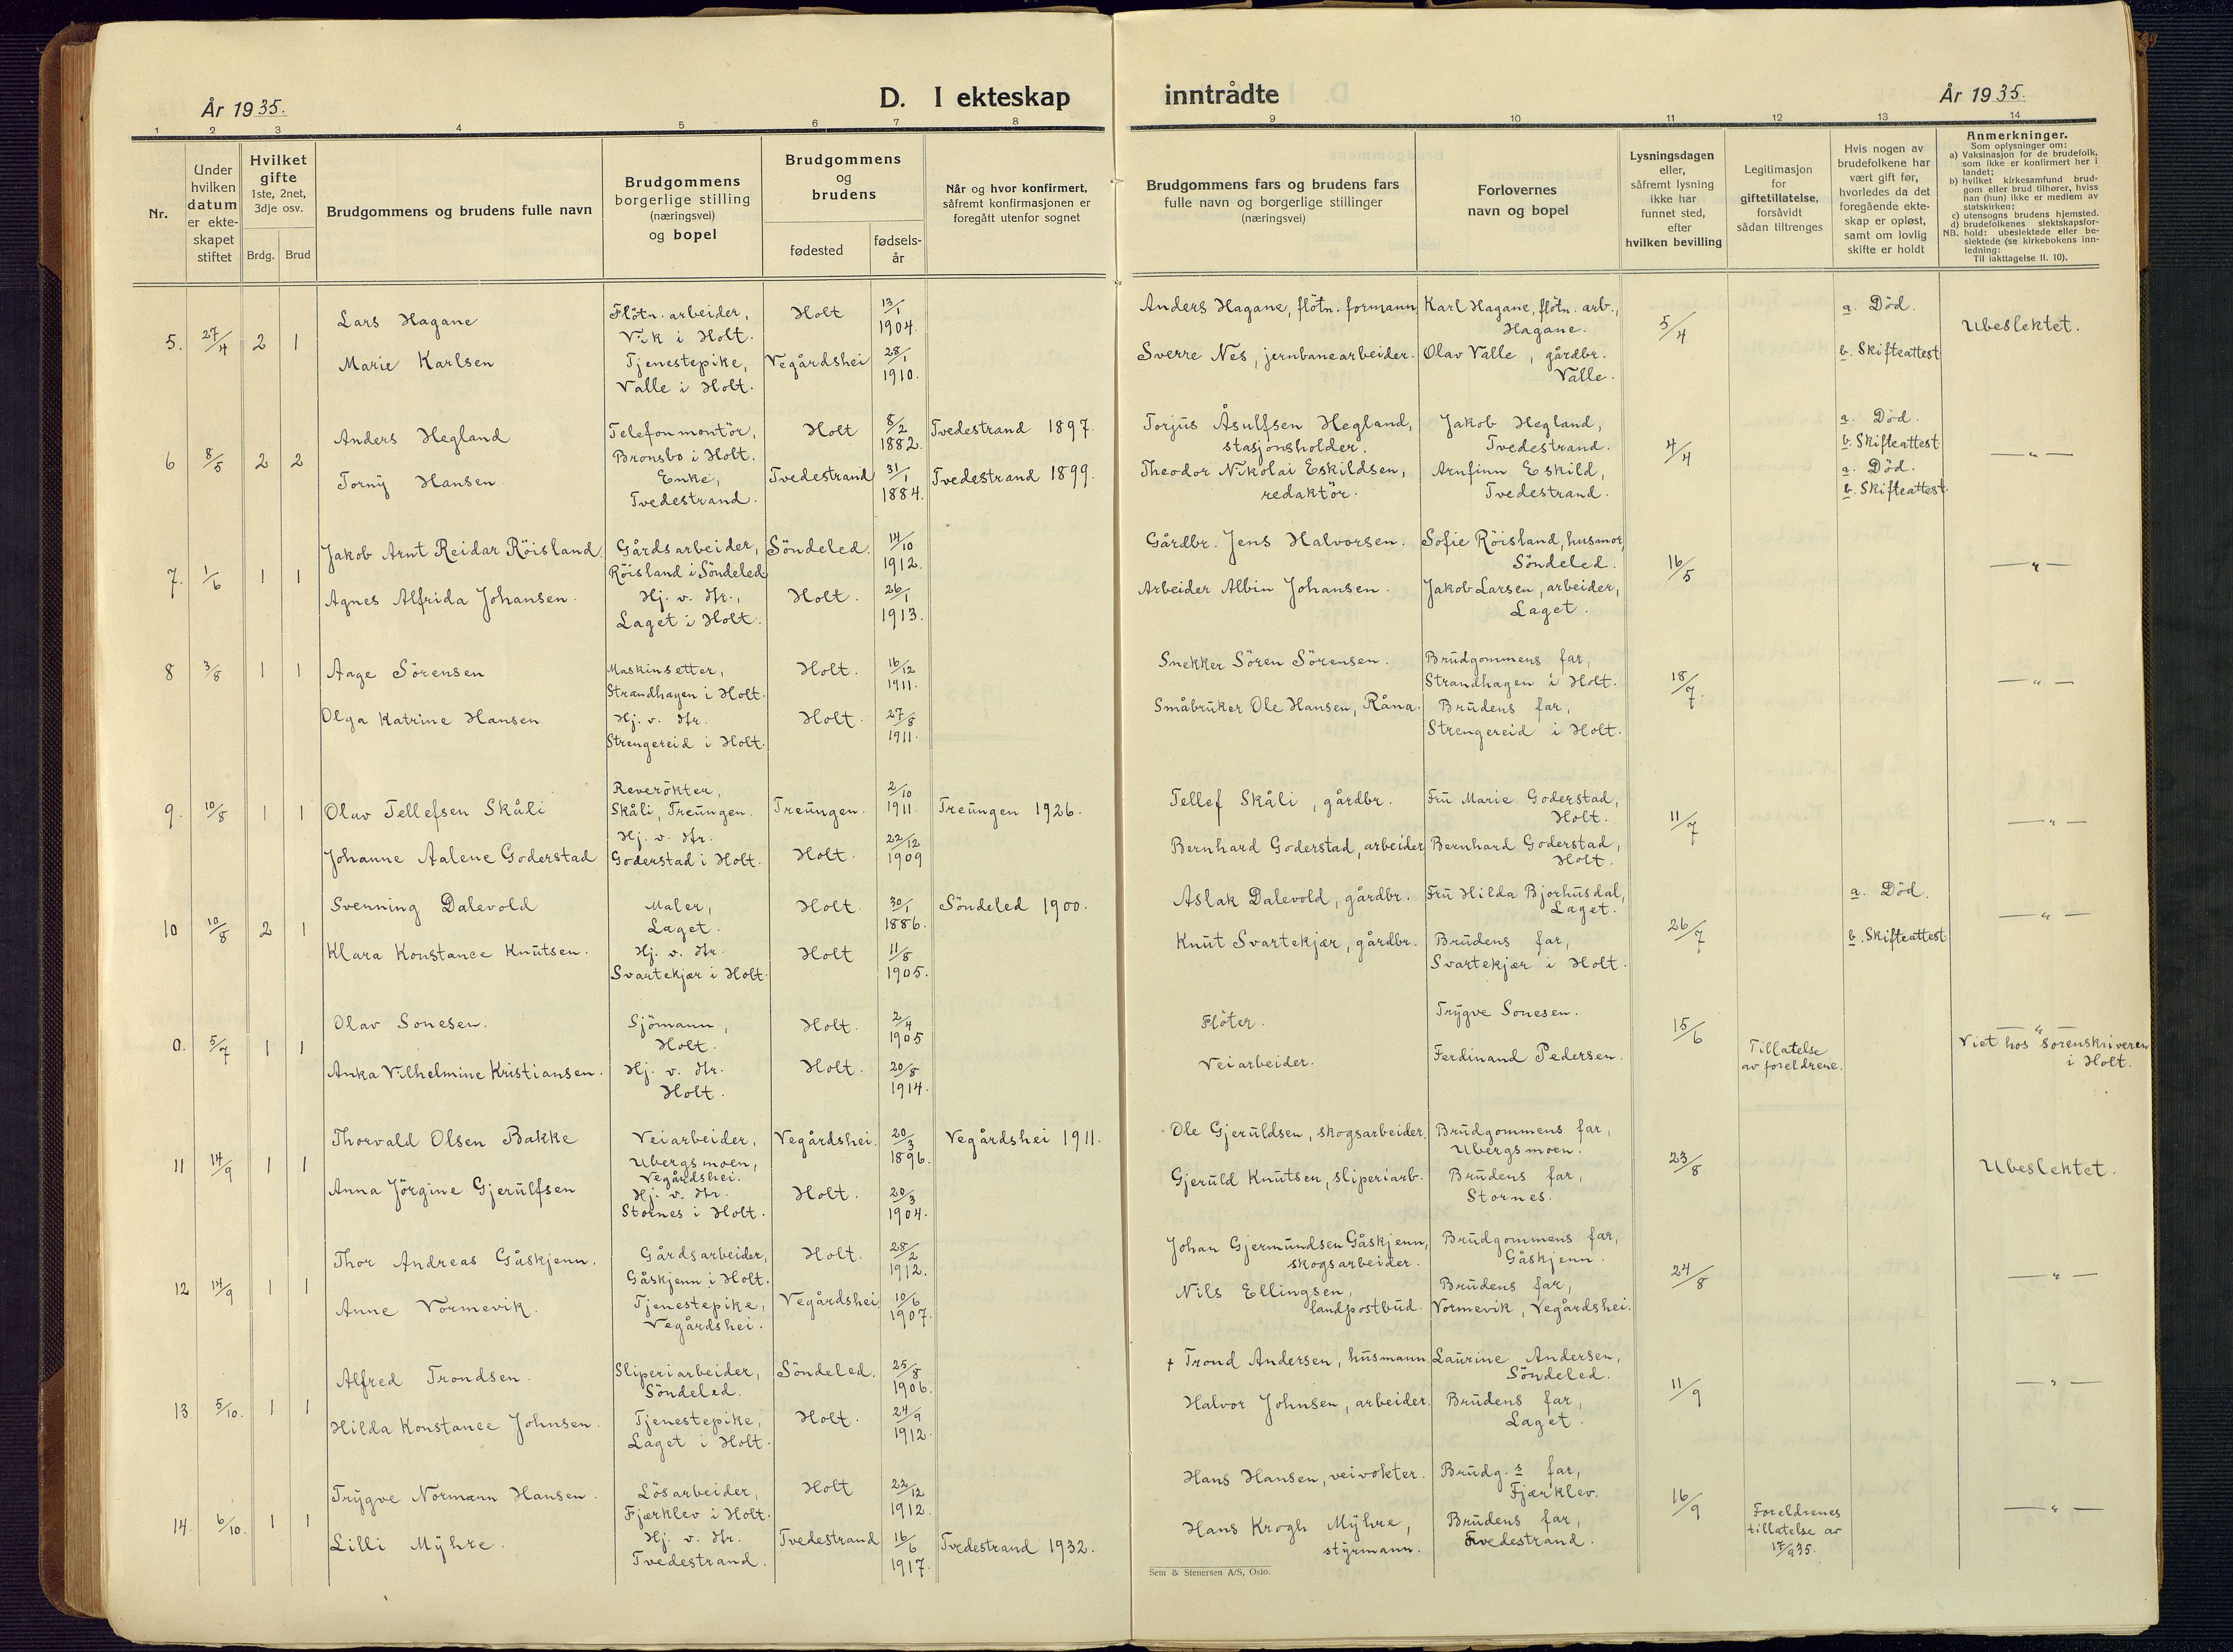 År 1935.
D. I ekteskap
inntrådte
År 1935.
1 2 3 4 5 6 7 8 9 10 11 12 13 14
Nr.
Under
hvilken
datum
er ekte-
skapet
stiftet
Hvilket
gifte
1ste, 2net,
3dje osv.
Brdg. Brud
Brudgommens og brudens fulle navn
Brudgommens
borgerlige stilling
(næringsvei)
og bopel
Brudgommens
og
brudens
fødested
fødsels-
år
Når og hvor konfirmert,
såfremt konfirmasjonen er
foregått utenfor sognet
Brudgommens fars og brudens fars
fulle navn og borgerlige stillinger
(næringsvei)
Forlovernes
navn og bopel
Lysningsdagen
eller,
såfremt lysning
ikke har
funnet sted,
efter
hvilken bevilling
Legitimasjon
for
giftetillatelse,
forsåvidt
sådan tiltrenges
Hvis nogen av
brudefolkene har
vært gift før,
hvorledes da det
foregående ekte-
skap er opløst,
samt om lovlig
skifte er holdt
Anmerkninger.
Som oplysninger om:
a) Vaksinasjon for de brudefolk,
som ikke er konfirmert her i
landet;
b) hvilket kirkesamfund brud-
gom eller brud tilhører, hviss
han (hun) ikke er medlem av
statskirken;
c) utensogns brudens hjemsted.
d) brudefolkenes slektskapsfor-
NB. hold: ubeslektede eller be-
slektede (se kirkebokens inn-
ledning:
Til iakttagelse II. 10).
5. 27/4 2 1
Lars Hagane
Flötn. arbeider,
Vik i Holt.
Holt
13/1
1904.
Anders Hagane, flötn. formann
Karl Hagane, flötn. arb.,
Hagane.
5/4
a. Död.
Ubeslektet.
Marie Karlsen
Tjenestepike,
Valle i Holt.
Vegårdshei
28/1
1910.
Sverre Nes, jernbanearbeider.
Olav Valle, gårdbr.
Valle.
b. Skifteattest
6 8/5 2 2
Anders Hegland
Telefonmontör,
Bronsbo i Holt.
Holt
5/2
1882.
Tvedestrand 1897.
Torjus Åsulfsen Hegland,
stasjonsholder.
Jakob Hegland,
Tvedestrand.
4/4
a. Död.
b. Skifteattest
— " —
Torny Hansen
Enke,
Tvedestrand.
Tvedestrand
31/1
1884.
Tvedestrand 1899.
Theodor Nikolai Eskildsen,
redaktör.
Arnfinn Eskild,
Tvedestrand.
a. Död.
b. Skifteattest.
7. 1/6 1 1
Jakob Arnt Reidar Röisland
Gårdsarbeider,
Röisland i Söndeled
Söndeled.
14/10
1912.
Gårdbr. Jens Halvorsen.
Sofie Röisland, husmor,
Söndeled.
16/5
— " —
Agnes Alfrida Johansen.
Hj. v. Hr.,
Laget i Holt.
Holt.
26/1
1913.
Arbeider Albin Johansen.
Jakob Larsen, arbeider,
Laget.
8 3/8 1 1
Aage Sörensen
Maskinsetter,
Strandhagen i Holt.
Holt.
16/12
1911.
Snekker Sören Sörensen.
Brudgommens far,
Strandhagen i Holt.
18/7.
— " —
Olga Katrine Hansen
Hj. v. Hr.
Strengereid i Holt.
Holt.
27/8
1911.
Småbruker Ole Hansen, Råna.
Brudens far,
Strengereid i Holt.
9. 10/8 1 1
Olav Tellefsen Skåli
Reverökter,
Skåli, Treungen.
Treungen.
2/10
1911.
Treungen 1926.
Tellef Skåli, gårdbr.
Fru Marie Goderstad,
Holt.
11/7
— " —
Johanne Aalene Goderstad
Hj. v. Hr.
Goderstad i Holt.
Holt.
22/12
1909
Bernhard Goderstad, arbeider
Bernhard Goderstad,
Holt.
10 10/8 2 1
Svenning Dalevold
Maler,
Laget.
Holt.
30/1
1886.
Söndeled 1900.
Aslak Dalevold, gårdbr.
Fru Hilda Bjorhusdal,
Laget.
26/7
a. Död.
— " —
Klara Konstance Knutsen.
Hj. v. Hr.
Svartekjær i Holt.
Holt
11/8
1905.
Knut Svartekjær, gårdbr.
Brudens far,
Svartekjær i Holt.
b. Skifteattest
0. 5/7 1 1
Olav Sonesen.
Sjömann,
Holt.
Holt.
2/4
1905
Flöter.
Trygve Sonesen.
15/6
Tillatelse
av foreldrene.
— " —
Viet hos sorenskriveren
i Holt.
Anka Vilhelmine Kristiansen.
Hj. v. Hr.
Holt.
Holt.
20/8
1914.
Veiarbeider.
Ferdinand Pedersen.
11 14/9 1 1
Thorvald Olsen Bakke
Veiarbeider,
Ubergsmoen,
Vegårdshei.
Vegårdshei.
20/3
1896.
Vegårdshei 1911.
Ole Gjeruldsen, skogsarbeider.
Brudgommens far,
Ubergsmoen.
23/8
Ubeslektet.
Anna Jörgine Gjerulfsen
Hj. v. Hr.
Stornes i Holt.
Holt.
20/3
1904.
Gjeruld Knutsen, sliperiarb.
Brudens far,
Stornes.
12 14/9 1 1
Thor Andreas Gåskjenn.
Gårdsarbeider,
Gåskjenn i Holt.
Holt.
28/2
1912.
Johan Gjermundsen Gåskjenn,
skogsarbeider.
Brudgommens far,
Gåskjenn.
24/8
— " —
Anne Vormevik.
Tjenestepike,
Vegårdshei.
Vegårdshei
10/6
1907.
Nils Ellingsen,
landpostbud.
Brudens far,
Vormevik, Vegårdshei.
13 5/10. 1 1
Alfred Trondsen.
Sliperiarbeider,
Söndeled.
Söndeled.
25/8
1906.
+ Trond Andersen, husmann
Laurine Andersen,
Söndeled.
11/9
— " —
Hilda Konstance Johnsen.
Tjenestepike,
Laget i Holt.
Holt.
24/9
1912.
Halvor Johnsen, arbeider.
Brudens far,
Laget.
14. 6/10. 1 1
Trygve Normann Hansen.
Lösarbeider,
Fjærklev i Holt.
Holt
22/12
1912.
Hans Hansen, veivokter.
Brudg. s far,
Fjærklev.
16/9
Foreldrenes
tillatelse av
17/9 35.
— " —
Lilli Myhre.
Hj. v. Hr.
Tvedestrand.
Tvedestrand
16/6
1917.
Tvedestrand 1932.
Hans Krogh Myhre,
styrmann.
Brudens far,
Tvedestrand.
Sem & Stenersen A/S, Oslo.